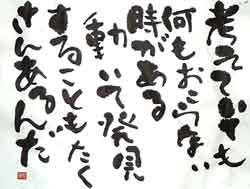 考えてても
何もおこらない
時がある
動いて発見
することもたく
さんあるんだ